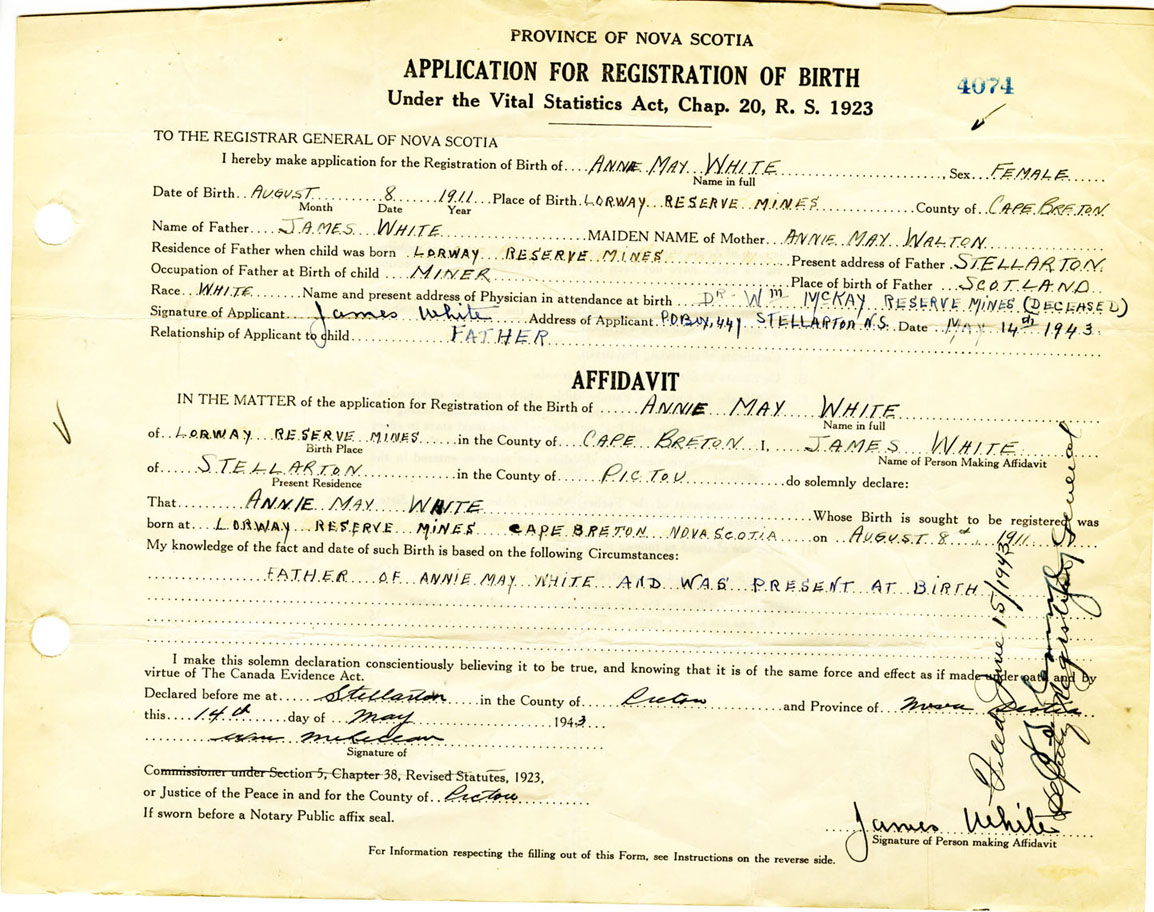 PROVINCE OF NOVA SCOTIA
APPLICATION FOR REGISTRATION OF BIRTH
4074
Under the Vital Statistics Act, Chap. 20, R. S. 1923
TO THE REGISTRAR GENERAL OF NOVA SCOTIA
I hereby make application for the Registration of Birth of ANNIE MAY WHITE, Sex FEMALE
Name in full
Date of Birth AUGUST 8 1911 Place of Birth LORWAY RESERVE MINES County of CAPE BRETON
Month Date Year
Name of Father JAMES WHITE MAIDEN NAME of Mother ANNIE MAY WALTON
Residence of Father when child was born LORWAY RESERVE MINES Present address of Father STELLARTON
Occupation of Father at Birth of child MINER Place of birth of Father SCOTLAND
Race WHITE Name and present address of Physician in attendance at birth DR. Wm McKAY RESERVE MINES (DECEASED)
Signature of Applicant James White Address of Applicant P.O BOX, 447 STELLARTON N.S. Date MAY 14th 1943
Relationship of Applicant to child FATHER
AFFIDAVIT
IN THE MATTER of the application for Registration of the Birth of ANNIE MAY WHITE
Name in full
of LORWAY RESERVE MINES in the County of CAPE BRETON I, JAMES WHITE
Birth Place Name of Person Making Affidavit
of STELLARTON in the County of PICTOU do solemnly declare:
Present Residence
That ANNIE MAY WHITE Whose Birth is sought to be registered was
born at LORWAY RESERVE MINES CAPE BRETON NOVA SCOTIA on AUGUST 8th, 1911
My knowledge of the fact and date of such Birth is based on the following Circumstances:
FATHER OF ANNIE MAY WHITE AND WAS PRESENT AT BIRTH
I make this solemn declaration conscientiously believing it to be true, and knowing that it is of the same force and effect as if made under oath and by
virtue of The Canada Evidence Act.
Declared before me at Stellarton in the County of Pictou and Province of Nova Scotia
this 14th day of May 1943
Wm
Signature of
Commissioner under Section 5, Chapter 38, Revised Statutes, 1923,
or Justice of the Peace in and for the County of Pictou
If sworn before a Notary Public affix seal.
James White
Signature of Person making Affidavit
For Information respecting the filling out of this Form, see Instructions on the reverse side.
Filed June 15/1943
Deputy Registrar General